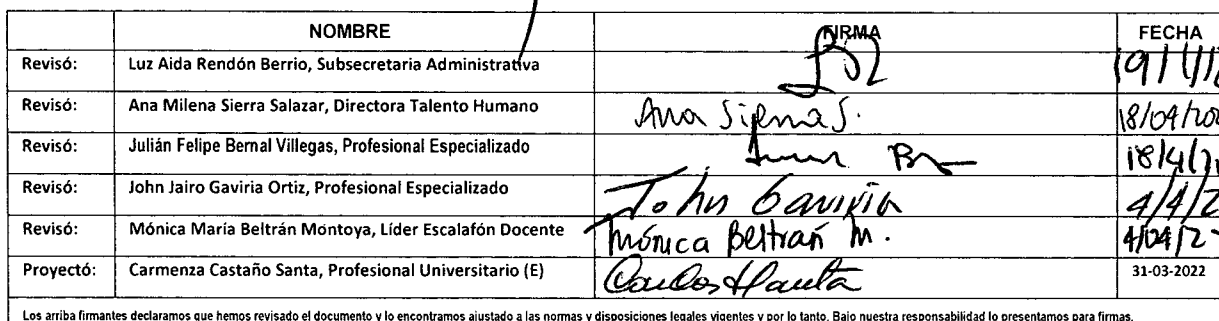 NOMBRE FIRMA FECHA
Revisó: Luz Aida Rendón Berrio, Subsecretaria Administrativa
Revisó: Ana Milena Sierra Salazar, Directora Talento Humano Ana Sierra S. 18/04/20
Revisó: Julián Felipe Bernal Villegas, Profesional Especializado 18/4/
Revisó: John Jairo Gaviria Ortiz, Profesional Especializado John Gaviria 4/4/2
Revisó: Mónica María Beltrán Montoya, Líder Escalafón Docente Mónica Beltrán M. 4/04/2
Proyectó: Carmenza Castaño Santa, Profesional Universitario (E) 31-03-2022
Los arriba firmantes declaramos que hemos revisado el documento y lo encontramos ajustado a las normas y disposiciones legales vigentes y por lo tanto, Bajo nuestra responsabilidad lo presentamos para firmas.